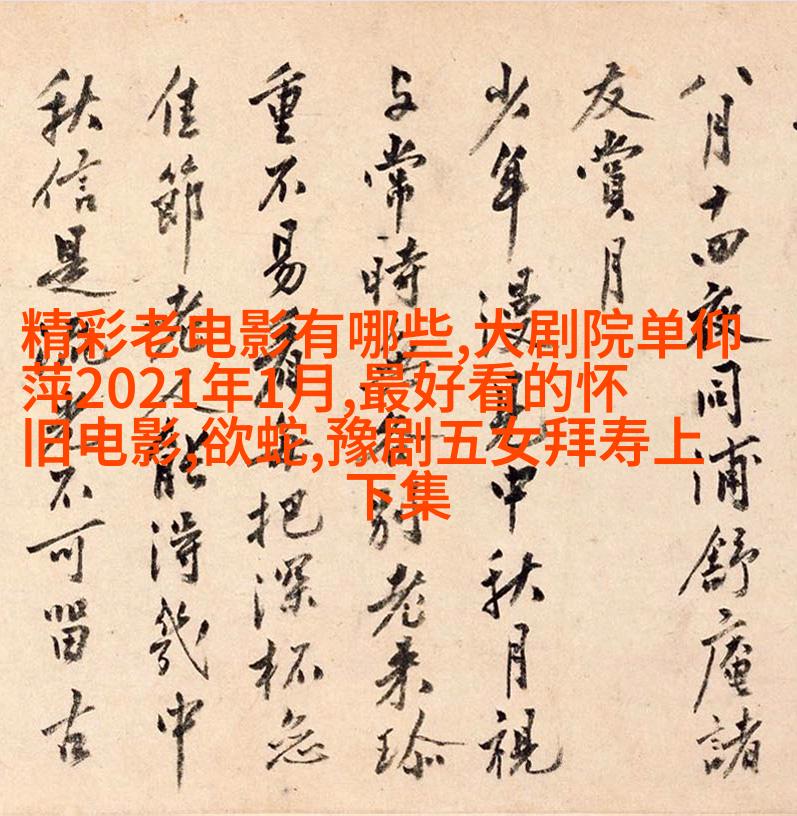 八月十四夜同浦舒庵諸
友賞月
少年漫見中秋月視
与常時無各別老来珍
重不易看每把深杯恋
佳節老人能得幾中
秋信是流光不可留古
精彩老电影有哪些,大剧院单仰
萍2021年1月,最好看的怀
旧电影,欲蛇,豫剧五女拜寿上
下集